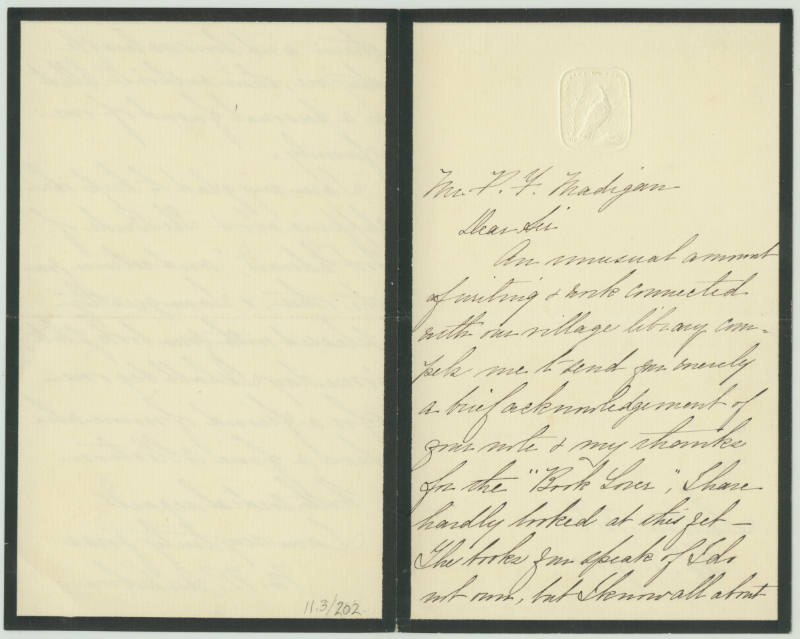 Mr. P. F. Madigan
Dear Sir
An unusual amount
of writing & work connected
with our village library com-
pels me to send you merely
a brief acknowledgement of
your note & my thanks
for the "Book Lover", I have
hardly looked at this yet –
The books you speak of I do
not own, but I know all about
11.3/202